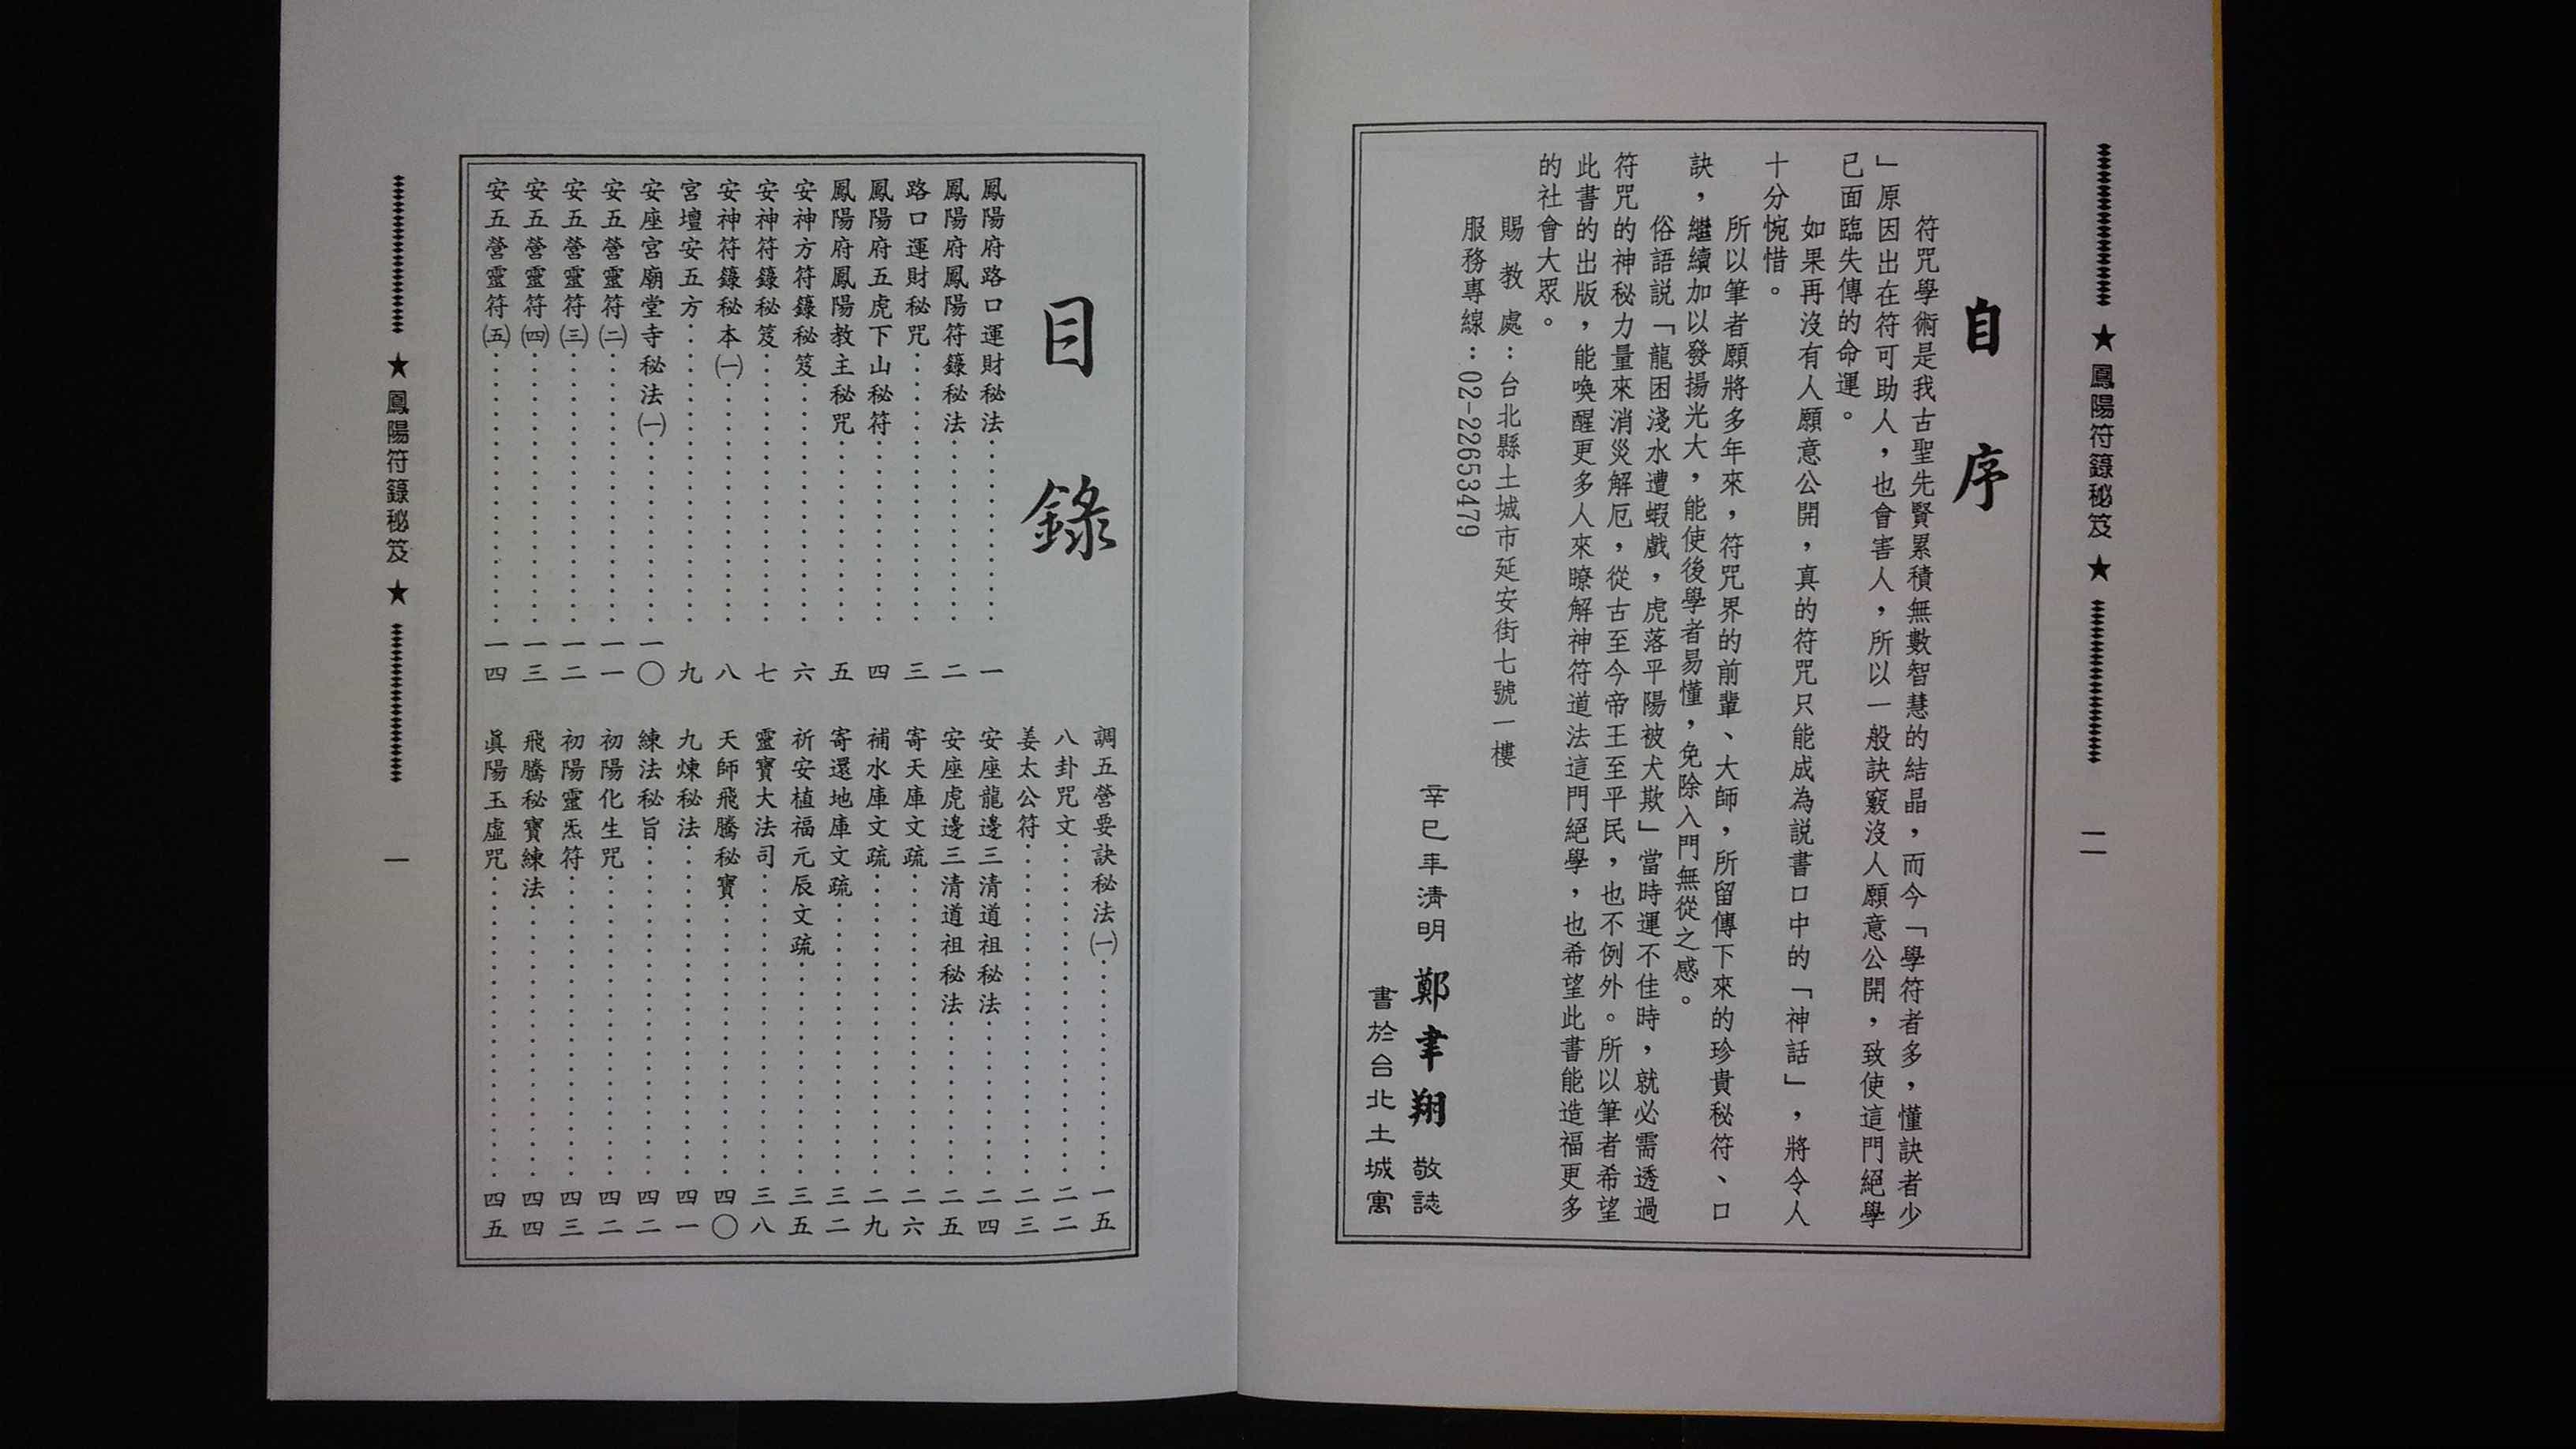 ★鳳陽符籙秘笈★
二
自序
符咒學術是我古聖先賢累積無數智慧的結晶，而今「學符者多，懂訣者少
」原因出在符可助人，也會害人，所以一般訣竅沒人願意公開，致使這門絕學
已面臨失傳的命運。
如果再沒有人願意公開，真的符咒只能成為説書口中的「神話」，將令人
十分惋惜。
所以筆者願將多年來，符咒界的前輩、大師，所留傳下來的珍貴秘符、口
訣，繼續加以發揚光大，能使後學者易懂，免除入門無從之感。
俗語説「龍困淺水遭蝦戲，虎落平陽被犬欺」當時運不佳時，就必需透過
符咒的神秘力量來消災解厄，從古至今帝王至平民，也不例外。所以筆者希望
此書的出版，能喚醒更多人來瞭解神符道法這門絕學，也希望此書能造福更多
的社會大眾。
賜教處：台北縣土城市延安街七號一樓
服務專線：02-22653479
辛巳年清明 鄭聿翔 敬誌
書於台北土城寓
目錄
鳳陽府路口運財秘法……一
鳳陽府鳳陽符籙秘法……二
路口運財秘咒……三
鳳陽府五虎下山秘符……四
鳳陽府鳳陽教主秘咒……五
安神方符籙秘笈……六
安神符籙秘笈……七
安神符籙秘本㈠……八
宮壇安五方……九
安座宮廟堂寺秘法㈠……一〇
安五營靈符㈡……一一
安五營靈符㈢……一二
安五營靈符㈣……一三
安五營靈符㈤……一四
調五營要訣秘法㈠……一五
八卦咒文……二二
姜太公符……二三
安座龍邊三清道祖秘法……二四
安座虎邊三清道祖秘法……二五
寄天庫文疏……二六
補水庫文疏……二九
寄還地庫文疏……三二
祈安植福元辰文疏……三五
靈寶大法司……三八
天師飛騰秘寶……四〇
九煉秘法……四一
練法秘旨……四二
初陽化生咒……四二
初陽靈炁符……四三
飛騰秘寶練法……四四
眞陽玉虛咒……四五
★鳳陽符籙秘笈★
一